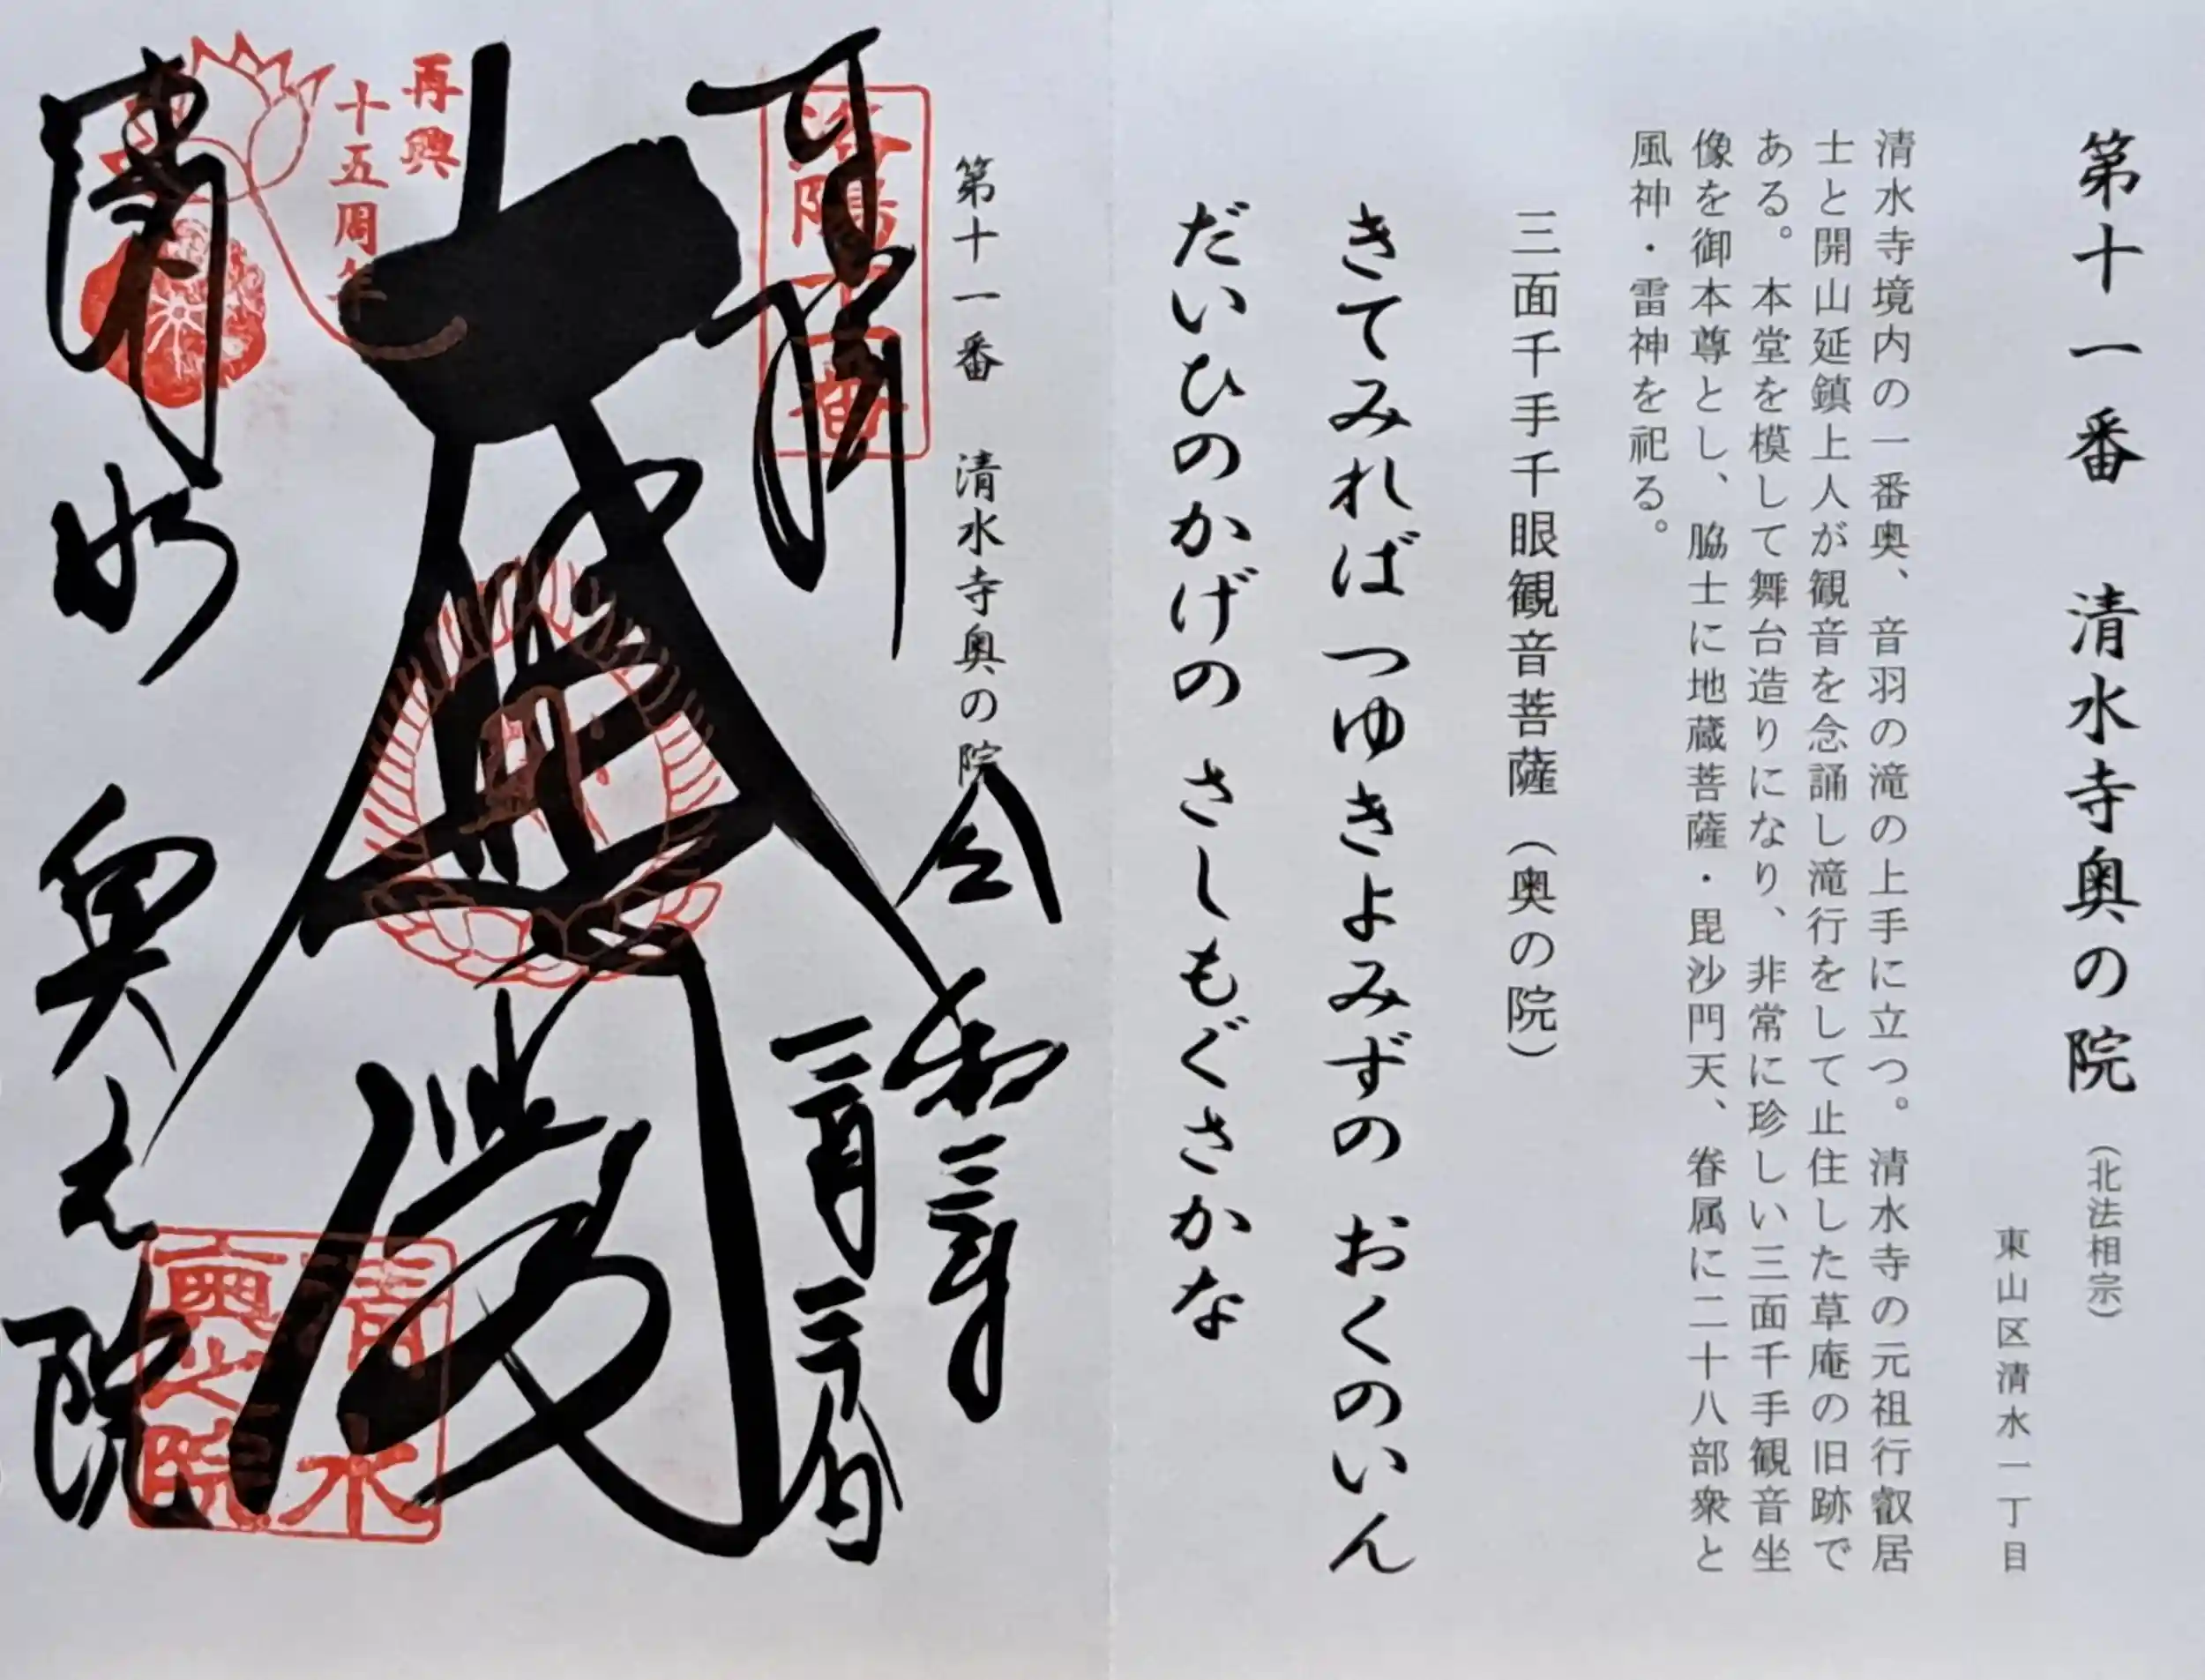 第十一番　清水寺奥の院（北法相宗）
東山区清水一丁目
清水寺境内の一番奥、音羽の滝の上手に立つ。清水寺の元祖行叡居
士と開山延鎮上人が観音を念誦し滝行をして止住した草庵の旧跡で
ある。本堂を模して舞台造りになり、非常に珍しい三面千手観音坐
像を御本尊とし、脇士に地蔵菩薩・毘沙門天、眷属に二十八部衆と
風神・雷神を祀る。
三面千手千眼観音菩薩（奥の院）
きてみれば つゆきよみずの おくのいん
だいひのかげの さしもぐさかな
第十一番　清水寺奥の院
令和三年
二月二十八日
奉拝
洛陽十一番
大悲閣
再興
十五周年
清水
奥之院
清水奥之院